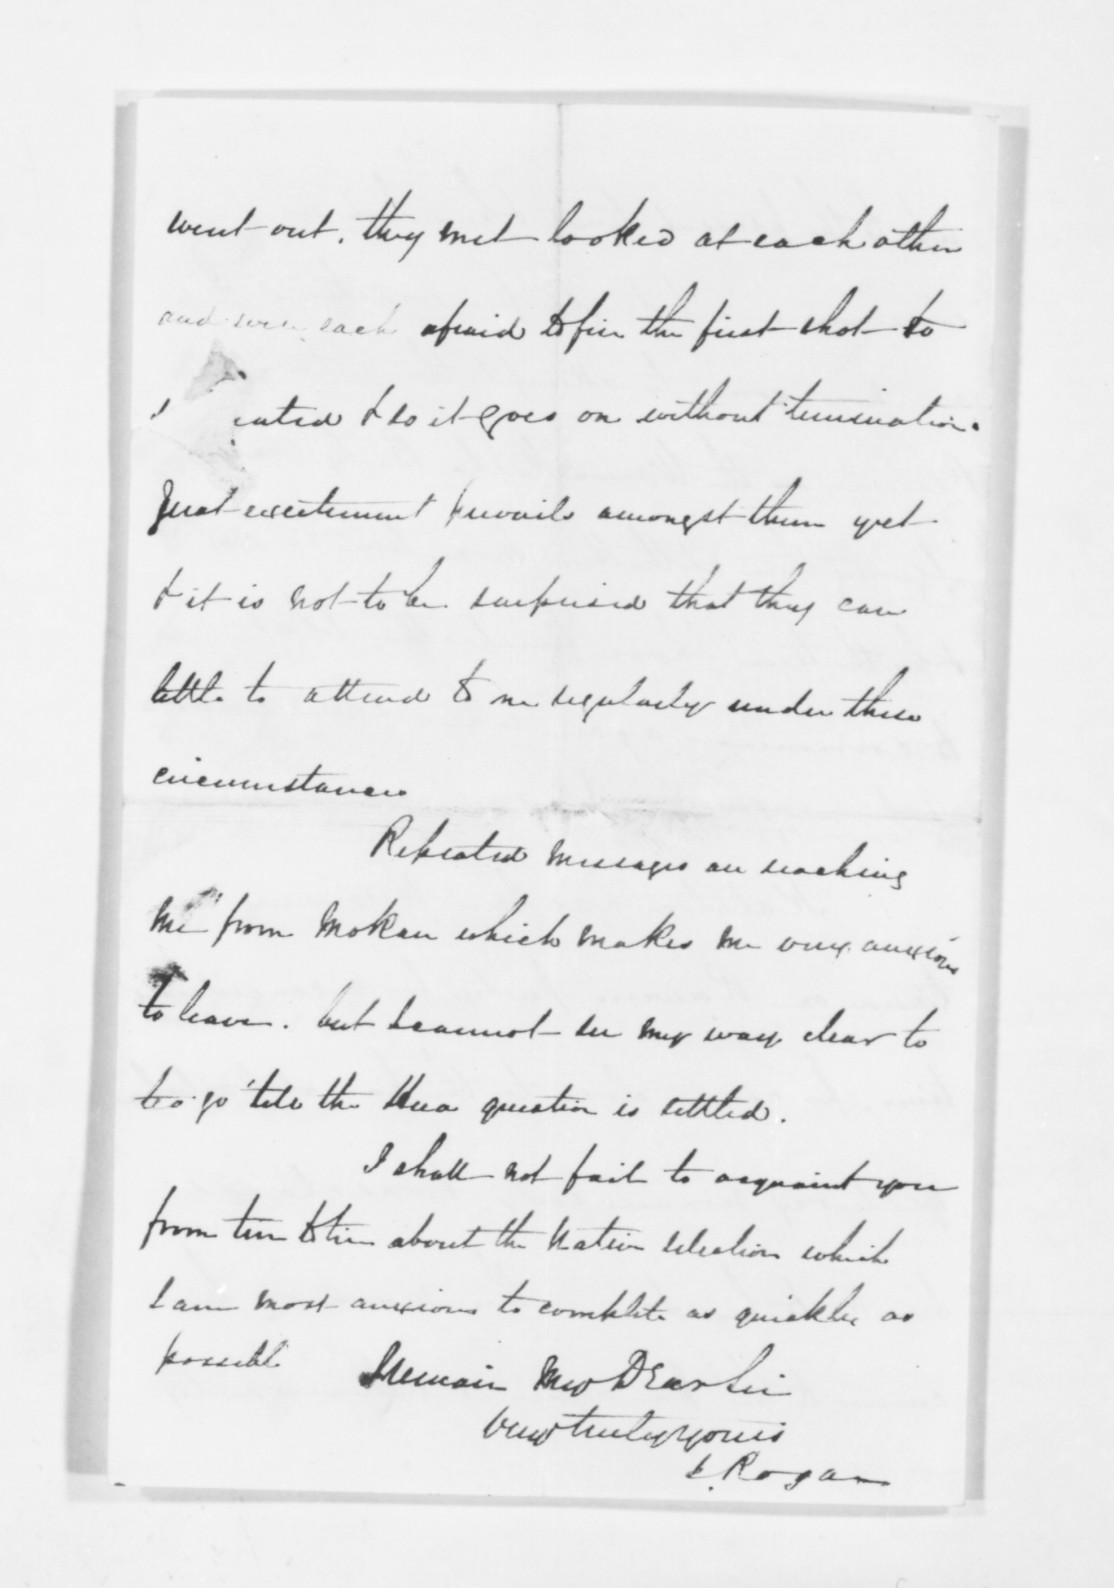 went out. they met looked at each other
and were each afraid to fire the first shot to
& so it goes on without termination.
Great excitement prevails amongst them yet
& it is not to be surprised that they care
little to attend to me regularly under these
circumstances
Repeated messages are reaching
me from Mokau which makes me very anxious
to leave. but I cannot see my way clear to
to go 'till the Hua question is settled.
I shall not fail to acquaint you
from time to time about the Native selection which
I am most anxious to complete as quickly as
possible I remain My Dear Sir
Very truly yours
Rogan